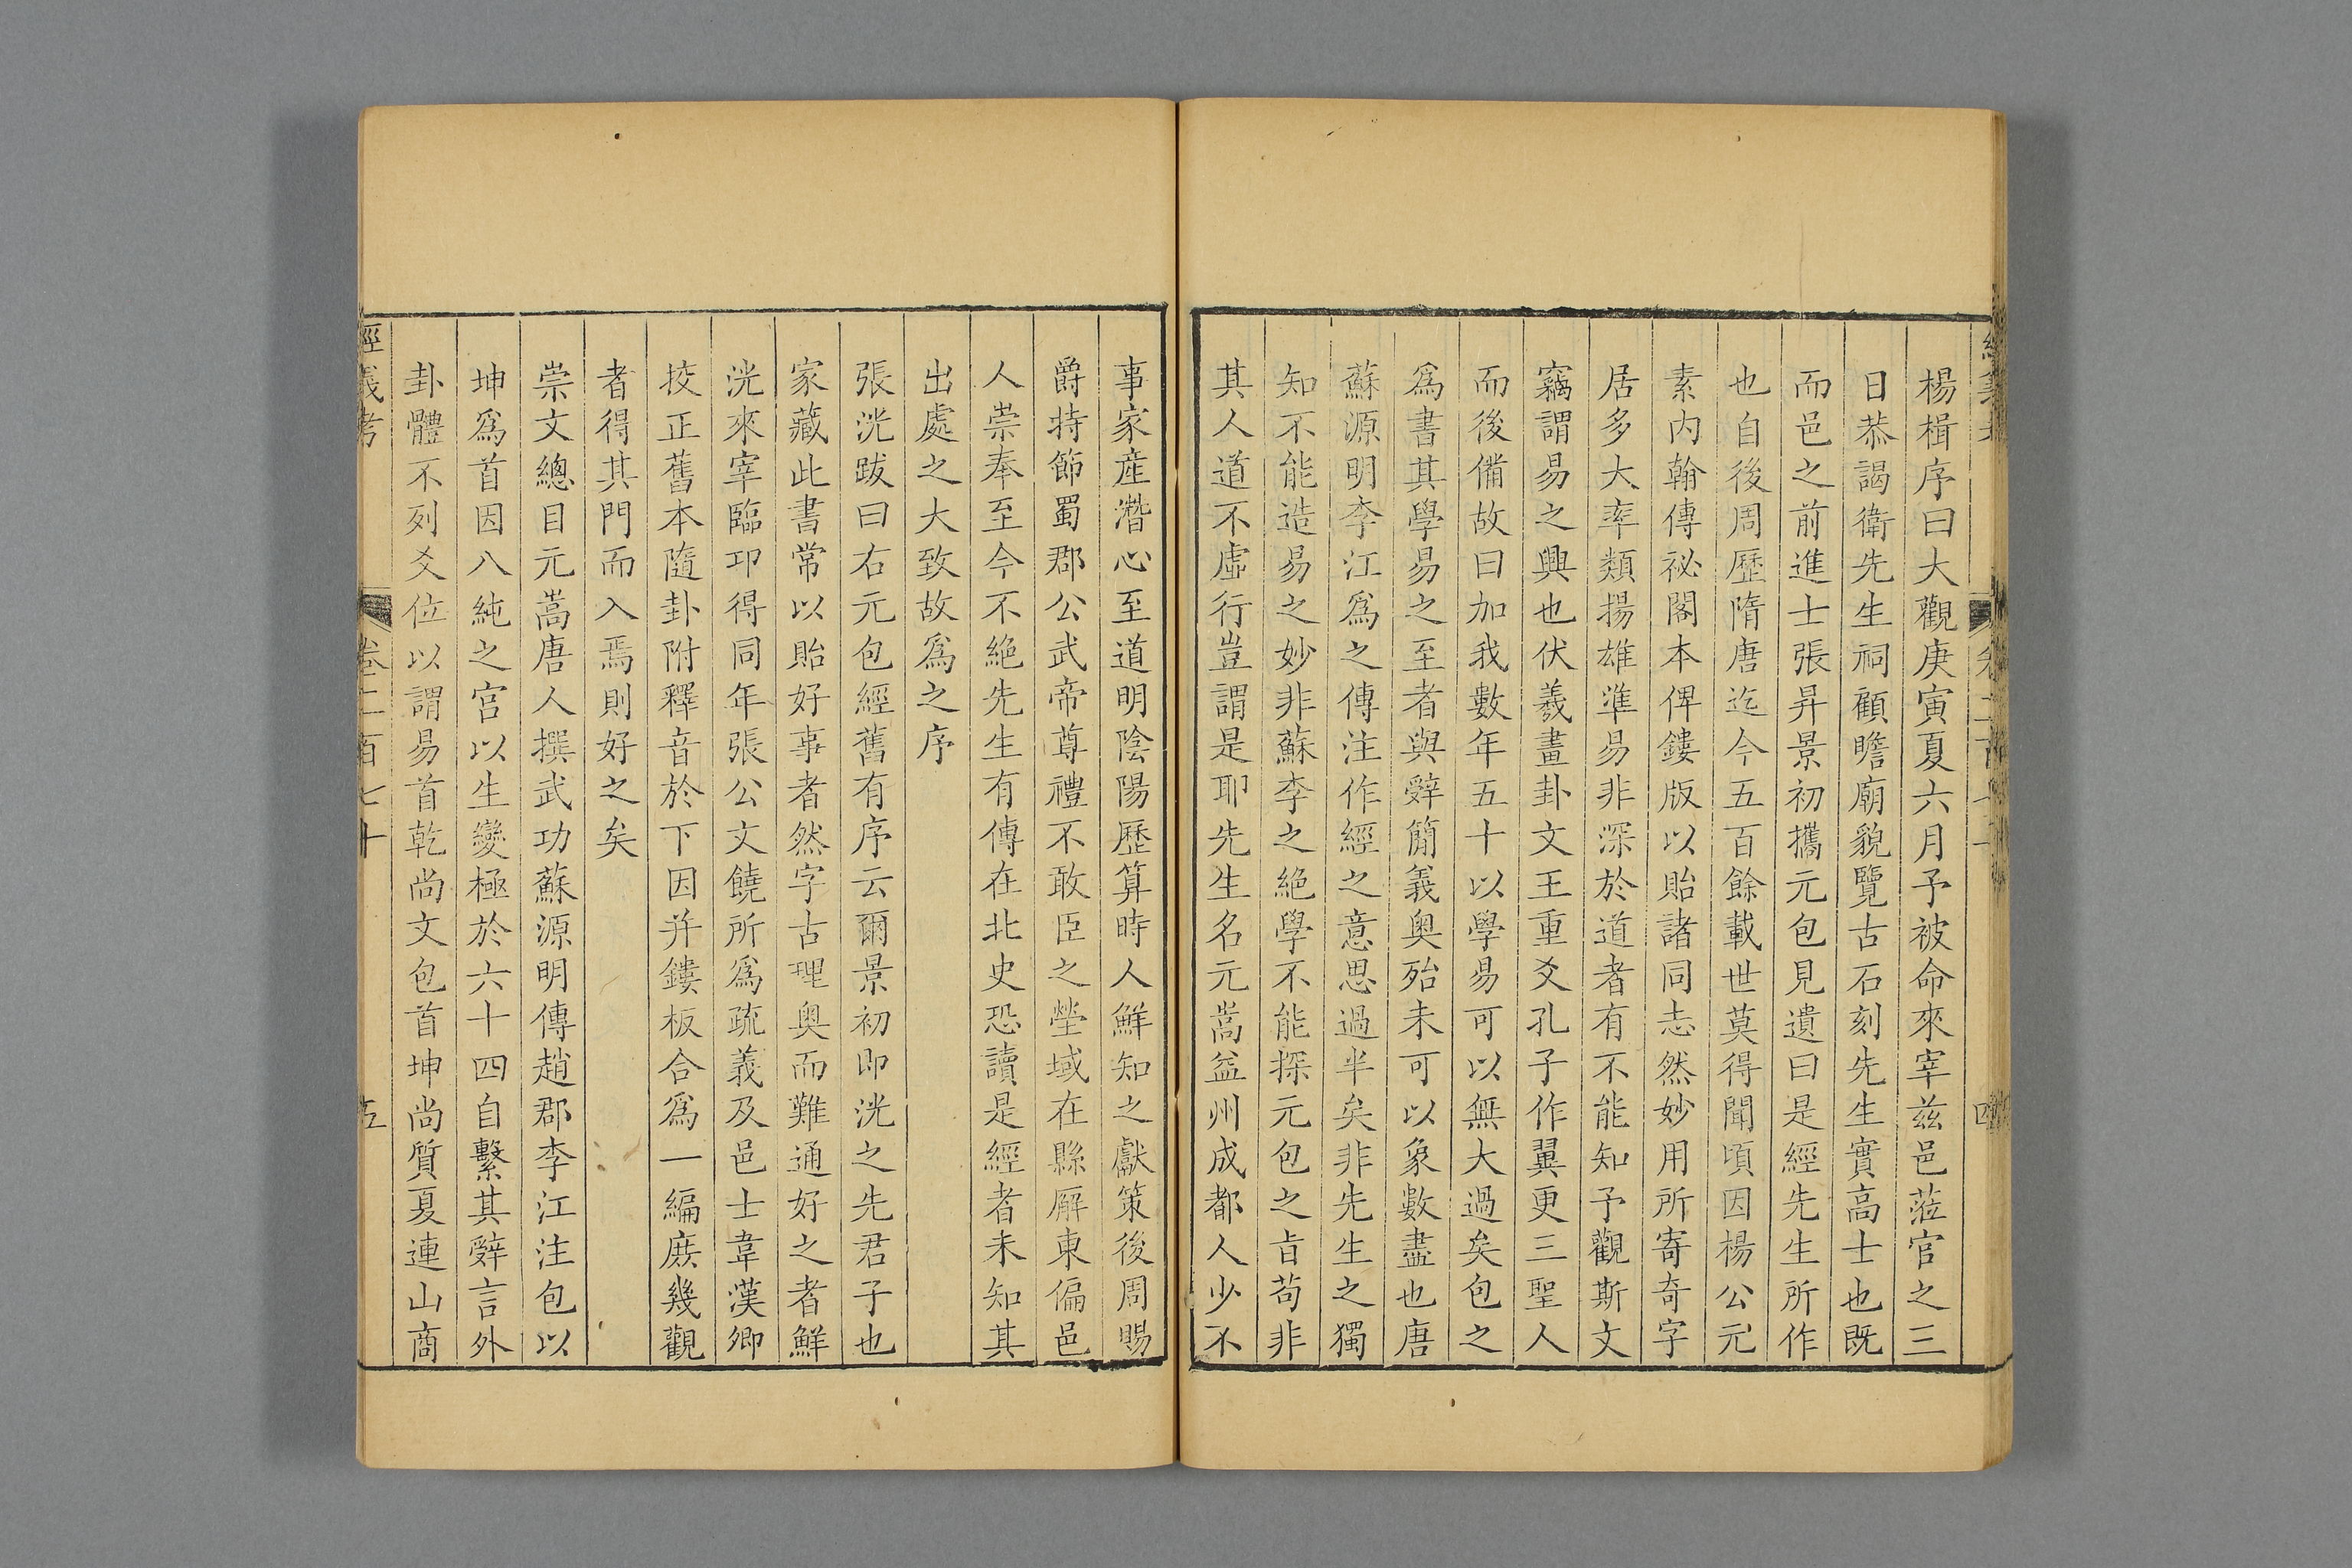 楊楫序曰大觀庚寅夏六月予被命來宰兹邑蒞官之三
日恭謁衛先生祠顧瞻廟貌覽古石刻先生實高士也既
而邑之前進士張昇景初攜元包見遺曰是經先生所作
也自後周歷隋唐迄今五百餘載世莫得聞頃因楊公元
素内翰傳祕閣本俾鏤版以貽諸同志然妙用所寄奇字
居多大率類揚雄準易非深於道者有不能知予觀斯文
竊謂易之興也伏羲畫卦文王重爻孔子作翼更三聖人
而後備故曰加我數年五十以學易可以無大過矣包之
爲書其學易之至者與辭簡義奥殆未可以象數盡也唐
蘇源明李江爲之傳注作經之意思過半矣非先生之獨
知不能造易之妙非蘇李之絶學不能探元包之旨苟非
其人道不虛行豈謂是耶先生名元嵩益州成都人少不
事家産潛心至道明陰陽歷算時人鮮知之獻策後周賜
爵持節蜀郡公武帝尊禮不敢臣之塋域在縣廨東偏邑
人崇奉至今不絶先生有傳在北史恐讀是經者未知其
出處之大致故爲之序
張洸跋曰右元包經舊有序云爾景初即洸之先君子也
家藏此書常以貽好事者然字古理奥而難通好之者鮮
洸來宰臨卭得同年張公文饒所爲疏義及邑士韋漢卿
挍正舊本隨卦附釋音於下因并鏤板合爲一編庶幾觀
者得其門而入焉則好之矣
崇文總目元嵩唐人撰武功蘇源明傳趙郡李江注包以
坤爲首因八純之宫以生變極於六十四自繫其辭言外
卦體不列爻位以謂易首乾尚文包首坤尚質夏連山商
經義考 卷二百七十 五